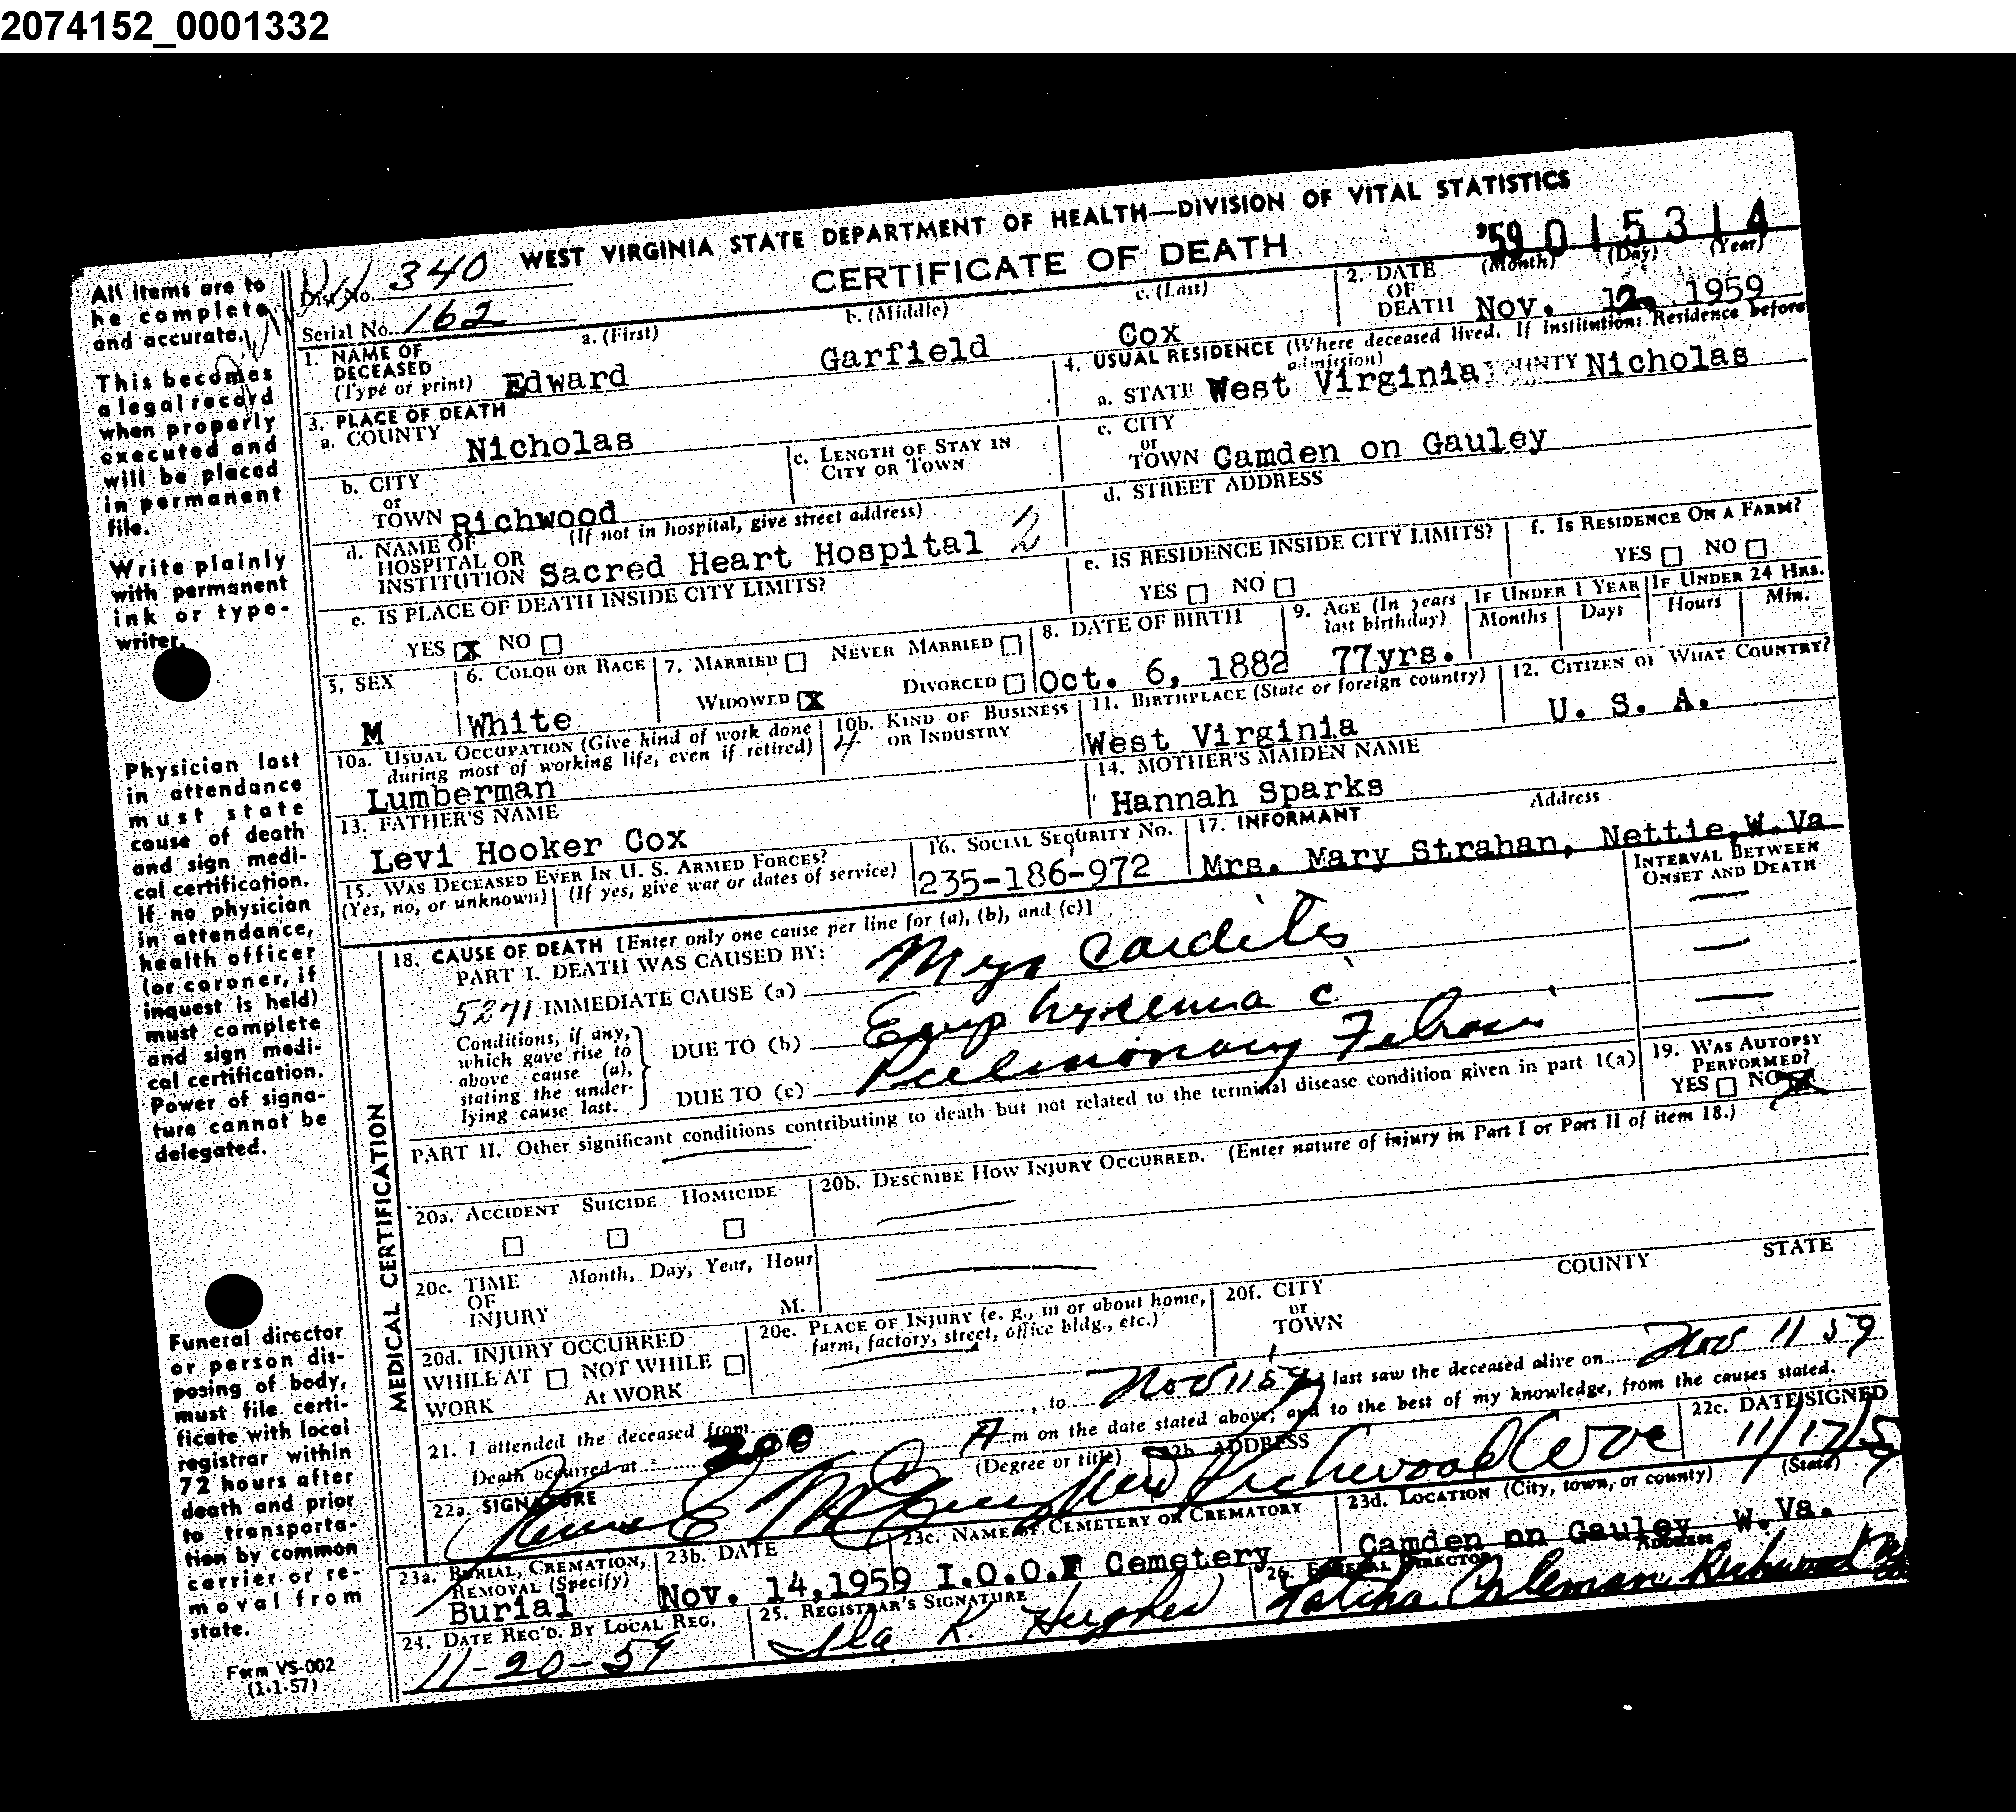 2074152_0001332
WEST VIRGINIA STATE DEPARTMENT OF HEALTH—DIVISION OF VITAL STATISTICS
CERTIFICATE OF DEATH
'59 015314
Dist. No. 340
Serial No. 162
All items are to
be complete
and accurate.
This becomes
a legal record
when properly
executed and
will be placed
in permanent
file.
Write plainly
with permanent
ink or type-
writer.
Physician last
in attendance
must state
cause of death
and sign medi-
cal certification.
If no physician
in attendance,
health officer
(or coroner, if
inquest is held)
must complete
and sign medi-
cal certification.
Power of signa-
ture cannot be
delegated.
Funeral director
or person dis-
posing of body,
must file certi-
ficate with local
registrar within
72 hours after
death and prior
to transporta-
tion by common
carrier or re-
moval from
state.
Form VS-002
(1-1-57)
1. NAME OF DECEASED (Type or print)
a. (First) b. (Middle) c. (Last)
Edward Garfield Cox
2. DATE OF DEATH (Month) (Day) (Year)
Nov. 12, 1959
3. PLACE OF DEATH
a. COUNTY Nicholas
b. CITY or TOWN Richwood
c. LENGTH OF STAY IN CITY OR TOWN
d. NAME OF HOSPITAL OR INSTITUTION (If not in hospital, give street address)
Sacred Heart Hospital 2
e. IS PLACE OF DEATH INSIDE CITY LIMITS?
YES X NO
4. USUAL RESIDENCE (Where deceased lived. If institution: Residence before admission)
a. STATE West Virginia COUNTY Nicholas
c. CITY or TOWN Camden on Gauley
d. STREET ADDRESS
e. IS RESIDENCE INSIDE CITY LIMITS?
YES NO
f. IS RESIDENCE ON A FARM?
YES NO
5. SEX
M
6. COLOR OR RACE
White
7. MARRIED NEVER MARRIED
WIDOWED X DIVORCED
8. DATE OF BIRTH
Oct. 6, 1882
9. AGE (In years last birthday)
77yrs.
IF UNDER 1 YEAR
Months Days
IF UNDER 24 HRS.
Hours Min.
10a. USUAL OCCUPATION (Give kind of work done during most of working life, even if retired)
Lumberman
10b. KIND OF BUSINESS OR INDUSTRY
4
11. BIRTHPLACE (State or foreign country)
West Virginia
12. CITIZEN OF WHAT COUNTRY?
U. S. A.
13. FATHER'S NAME
Levi Hooker Cox
14. MOTHER'S MAIDEN NAME
Hannah Sparks
15. WAS DECEASED EVER IN U. S. ARMED FORCES?
(Yes, no, or unknown) (If yes, give war or dates of service)
16. SOCIAL SECURITY NO.
235-186-972
17. INFORMANT Address
Mrs. Mary Strahan, Nettie, W.Va
MEDICAL CERTIFICATION
18. CAUSE OF DEATH [Enter only one cause per line for (a), (b), and (c)]
INTERVAL BETWEEN ONSET AND DEATH
PART I. DEATH WAS CAUSED BY:
5271 IMMEDIATE CAUSE (a) Myocarditis
Conditions, if any, which gave rise to above cause (a), stating the underlying cause last.
DUE TO (b) Emphysema c
DUE TO (c) Pulmonary Fibrosis
PART II. Other significant conditions contributing to death but not related to the terminal disease condition given in part I(a)
19. WAS AUTOPSY PERFORMED?
YES NO X
20a. ACCIDENT SUICIDE HOMICIDE
20b. DESCRIBE HOW INJURY OCCURRED. (Enter nature of injury in Part I or Part II of item 18.)
20c. TIME OF INJURY Month, Day, Year, Hour
M.
20d. INJURY OCCURRED
WHILE AT WORK NOT WHILE At WORK
20e. PLACE OF INJURY (e. g., in or about home, farm, factory, street, office bldg., etc.)
20f. CITY or TOWN COUNTY STATE
21. I attended the deceased from , to Nov 11 59, I last saw the deceased alive on Nov 11 59
Death occurred at 200 A m on the date stated above; and to the best of my knowledge, from the causes stated.
22a. SIGNATURE (Degree or title)
22b. ADDRESS
Richwood W Va
22c. DATE SIGNED
11/17/59
23a. BURIAL, CREMATION, REMOVAL (Specify)
Burial
23b. DATE
Nov. 14,1959
23c. NAME OF CEMETERY OR CREMATORY
I.O.O.F Cemetery
23d. LOCATION (City, town, or county) (State)
Camden on Gauley W.Va.
24. DATE REC'D. BY LOCAL REG.
11-20-59
25. REGISTRAR'S SIGNATURE
Ila K. Hughes
26. FUNERAL DIRECTOR Address
Coleman Richwood